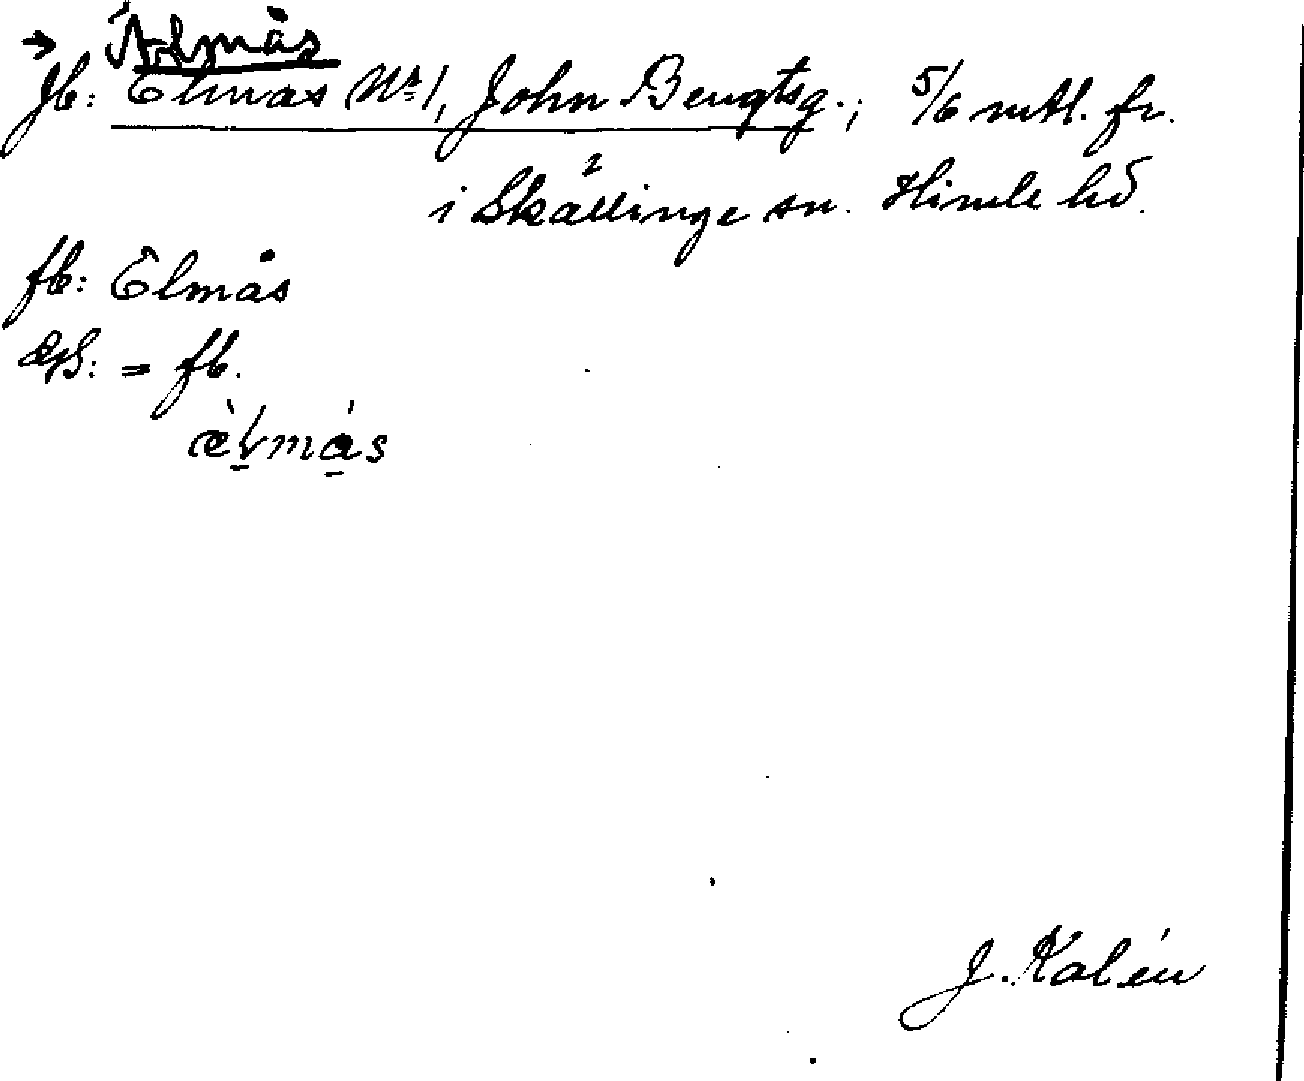 → Älmås
Jb: Elmås Nr 1, John Bengtsg.; 5/6 mtl. fr.
i Skällinge sn. Himle hd.
fb: Elmås
= fb.
J. Kalén